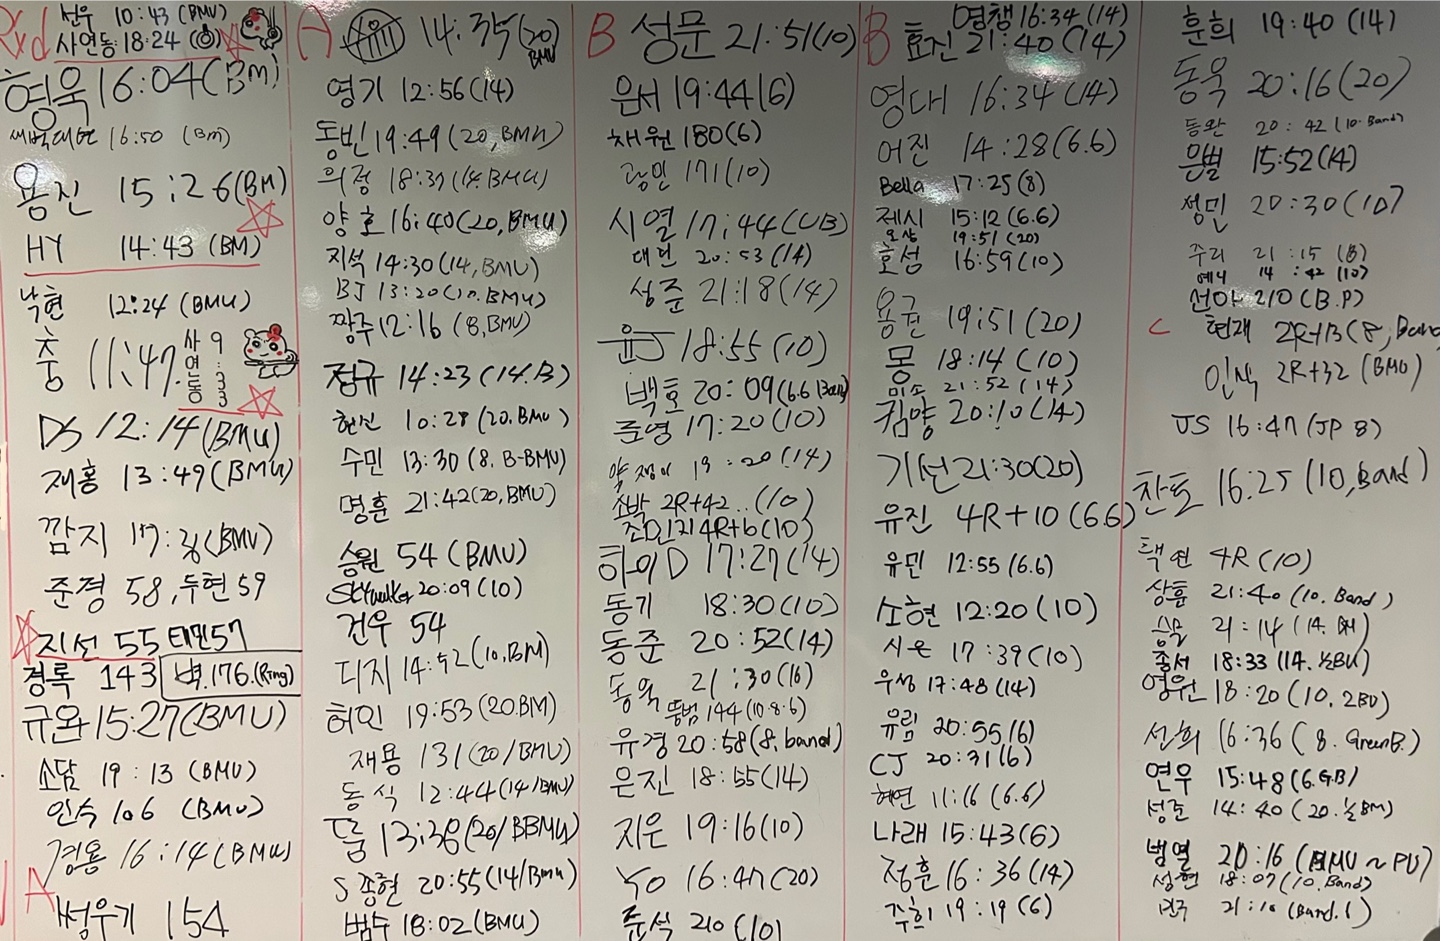 Rxd
선우 10:43 (BMU)
사연동 18:24
형욱 16:04 (BM)
새벽대면 16:50 (Bm)
용진 15:26 (BM)
HY 14:43 (BM)
낙현 12:24 (BMU)
충 11:47.
사연동 9:33
DS 12:14 (BMU)
재홍 13:49 (BMU)
깜지 17: (BMU)
준경 58, 두현 59
지선 55 태민 57
경록 143
벽.176.(Ring)
규완 15:27 (BMU)
소담 19:13 (BMU)
인수 106 (BMU)
경용 16:14 (BMU)
A
성우기 154
A
14:35 (20) BMU
영기 12:56 (14)
동빈 19:49 (20, BMU)
의정 18:37 (14. BMU)
양호 16:40 (20, BMU)
지석 14:30 (14, BMU)
BJ 13:20 (10. BMU)
짱주 12:16 (8, BMU)
정규 14:23 (14. B)
현신 10:28 (20. BMU)
수민 13:30 (8. B-BMU)
명훈 21:42 (20, BMU)
승원 54 (BMU)
Skywalker 20:09 (10)
건우 54
디지 14:52 (10, BM)
허민 19:53 (20. BM)
재용 131 (20/BMU)
동식 12:44 (14/BMU)
룸 13:38 (20/BBMU)
S 종현 20:55 (14/Bmu)
범수 18:02 (BMU)
B
성문 21:51 (10)
은서 19:44 (6)
채원 180 (6)
광민 171 (10)
시열 17:44 (UB)
대현 20:53 (14)
성준 21:18 (14)
윤J 18:55 (10)
백호 20:09 (6.6 Band)
준영 17:20 (10)
약쟁이 19:20 (14)
소박 2R+42.. (10)
조민지 4R+6 (10)
하이D 17:27 (14)
동기 18:30 (10)
동준 20:52 (14)
동욱 21:30 (16)
뚱범 144 (10.8.6)
유경 20:58 (8. band)
은진 18:55 (14)
지은 19:16 (10)
YO 16:47 (20)
준석 210 (10)
B
영챙 16:34 (14)
효진 21:40 (14)
영대 16:34 (14)
어진 14:28 (6.6)
Bella 17:25 (8)
제시 15:12 (6.6)
오상 19:51 (20)
호성 16:59 (10)
용권 19:51 (20)
몽 18:14 (10)
미소 21:52 (14)
김양 20:10 (14)
기선 21:30 (20)
유진 4R+10 (6.6)
유민 12:55 (6.6)
소현 12:20 (10)
시온 17:39 (10)
우성 17:48 (14)
유림 20:55 (6)
CJ 20:31 (6)
혜연 11:16 (6.6)
나래 15:43 (6)
정훈 16:36 (14)
주희 19:19 (6)
훈희 19:40 (14)
동욱 20:16 (20)
동완 20:42 (10. Band)
은별 15:52 (14)
정민 20:30 (10)
주리 21:15 (8)
예니 14:42 (10)
선아 210 (B.P)
C
현재 2R+13 (8, Band)
인식 2R+32 (BMU)
JS 16:47 (JP 8)
찬도 16:25 (10, Band)
택연 4R (10)
상훈 21:40 (10. Band)
승물 21:14 (14. BM)
종서 18:33 (14. ½BU)
영원 18:20 (10. 2BU)
선희 16:36 (8. GreenB.)
연우 15:48 (6.GB)
성준 14:40 (20. ½BM)
범열 20:16 (BMU ~ PU)
성현 18:07 (10. Band)
연주 21:10 (Band.6)